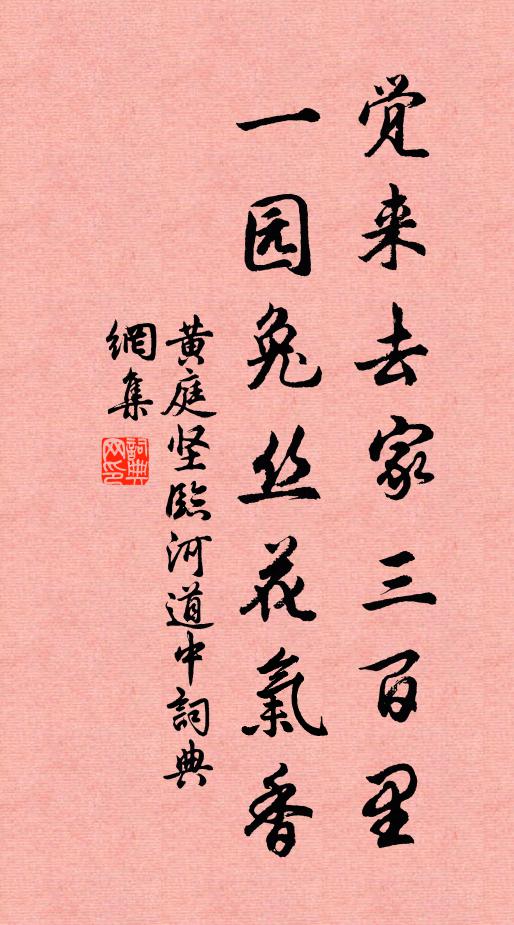 觉来去家三百里
一园兔丝花氣香
黄庭坚臨河道中詞典
網集
詞典
网印